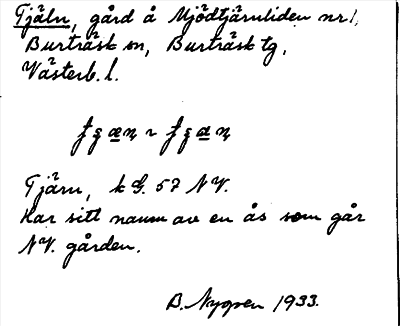 Tjäln, gård å Mjödtjärnliden nr 1,
Burträsk sn, Burträsk tg,
Västerb. l.
Tjärn, k G. 57 NV.
Har sitt namn av en ås som går
NV. gården.
B. Nygren 1933.